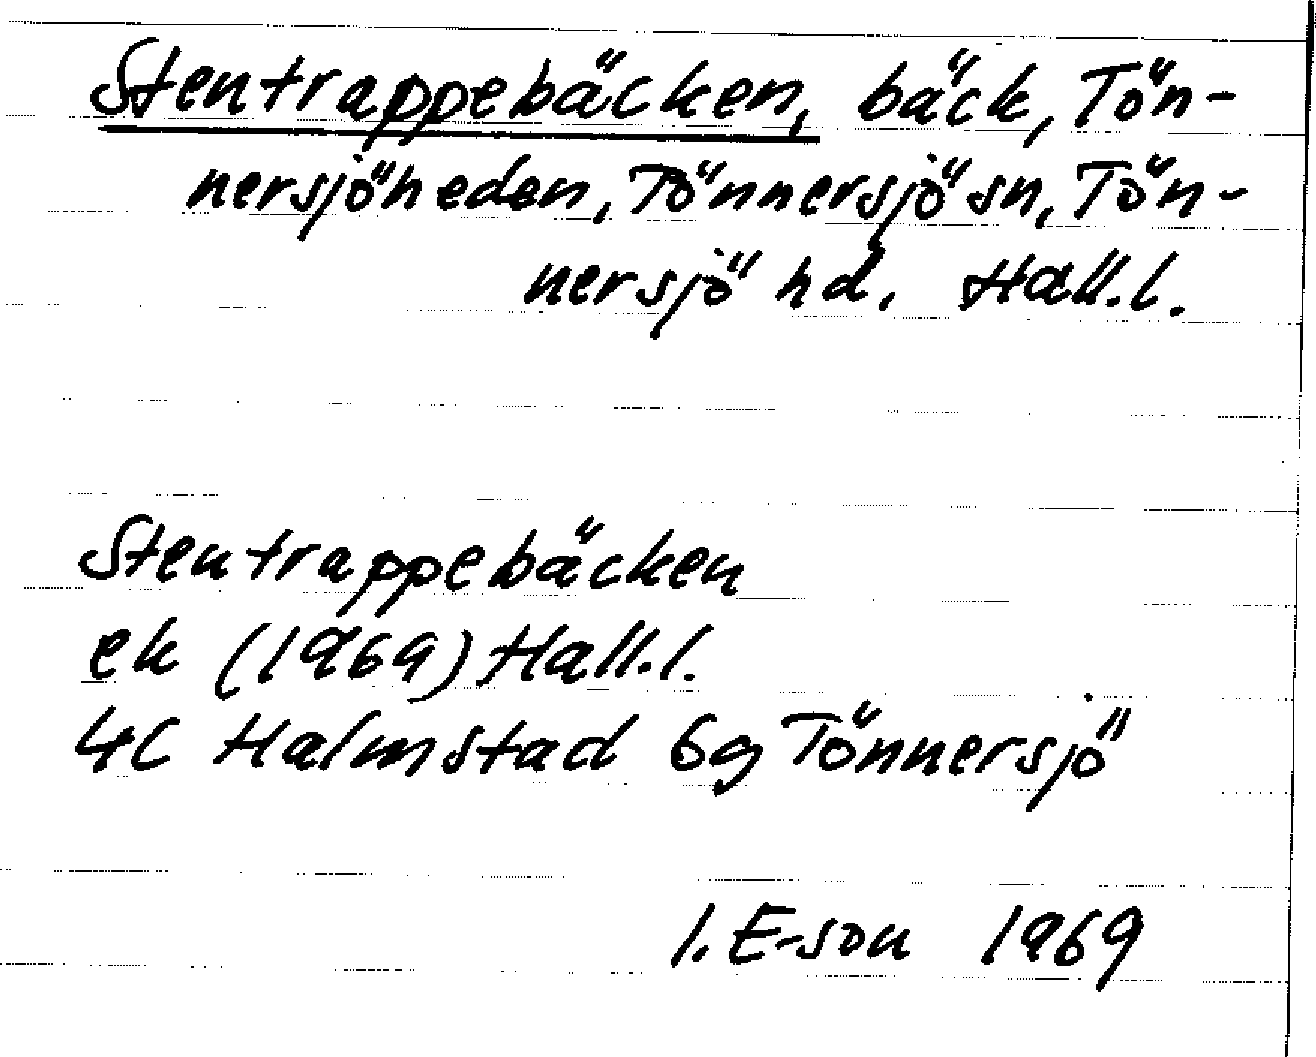 Stentrappebäcken, bäck, Tön-
nersjöheden, Tönnersjö sn, Tön-
nersjö hd. Hall.l.
Stentrappebäcken
ek (1969) Hall.l.
4C Halmstad 6g Tönnersjö
I. E-son 1969